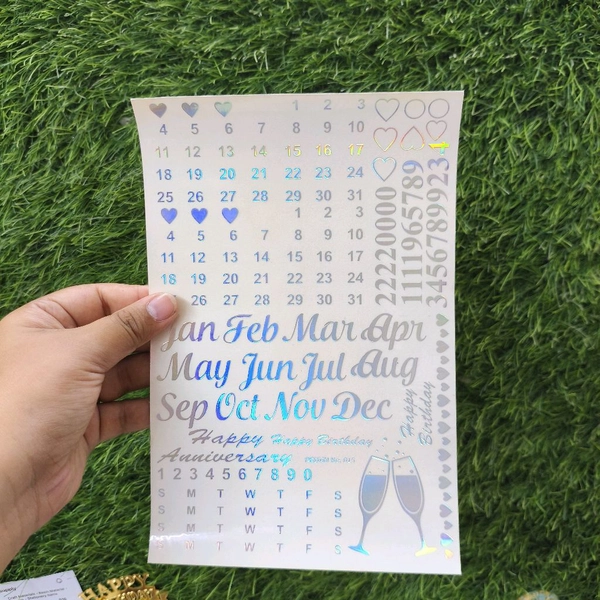 1 2 3
4 5 6 7 8 9 10
11 12 13 14 15 16 17
18 19 20 21 22 23 24
25 26 27 28 29 30 31
1 2 3
4 5 6 7 8 9 10
11 12 13 14 15 16 17
18 19 20 21 22 23 24
26 27 28 29 30 31
22220000
1111965789
34567899231
Jan Feb Mar Apr
May Jun Jul Aug
Sep Oct Nov Dec
Happy Happy Birthday
Anniversary
Happy
Birthday
1 2 3 4 5 6 7 8 9 0
S M T W T F S
S M T W T F S
S M T W T F S
S M T W T F S
HAPPY